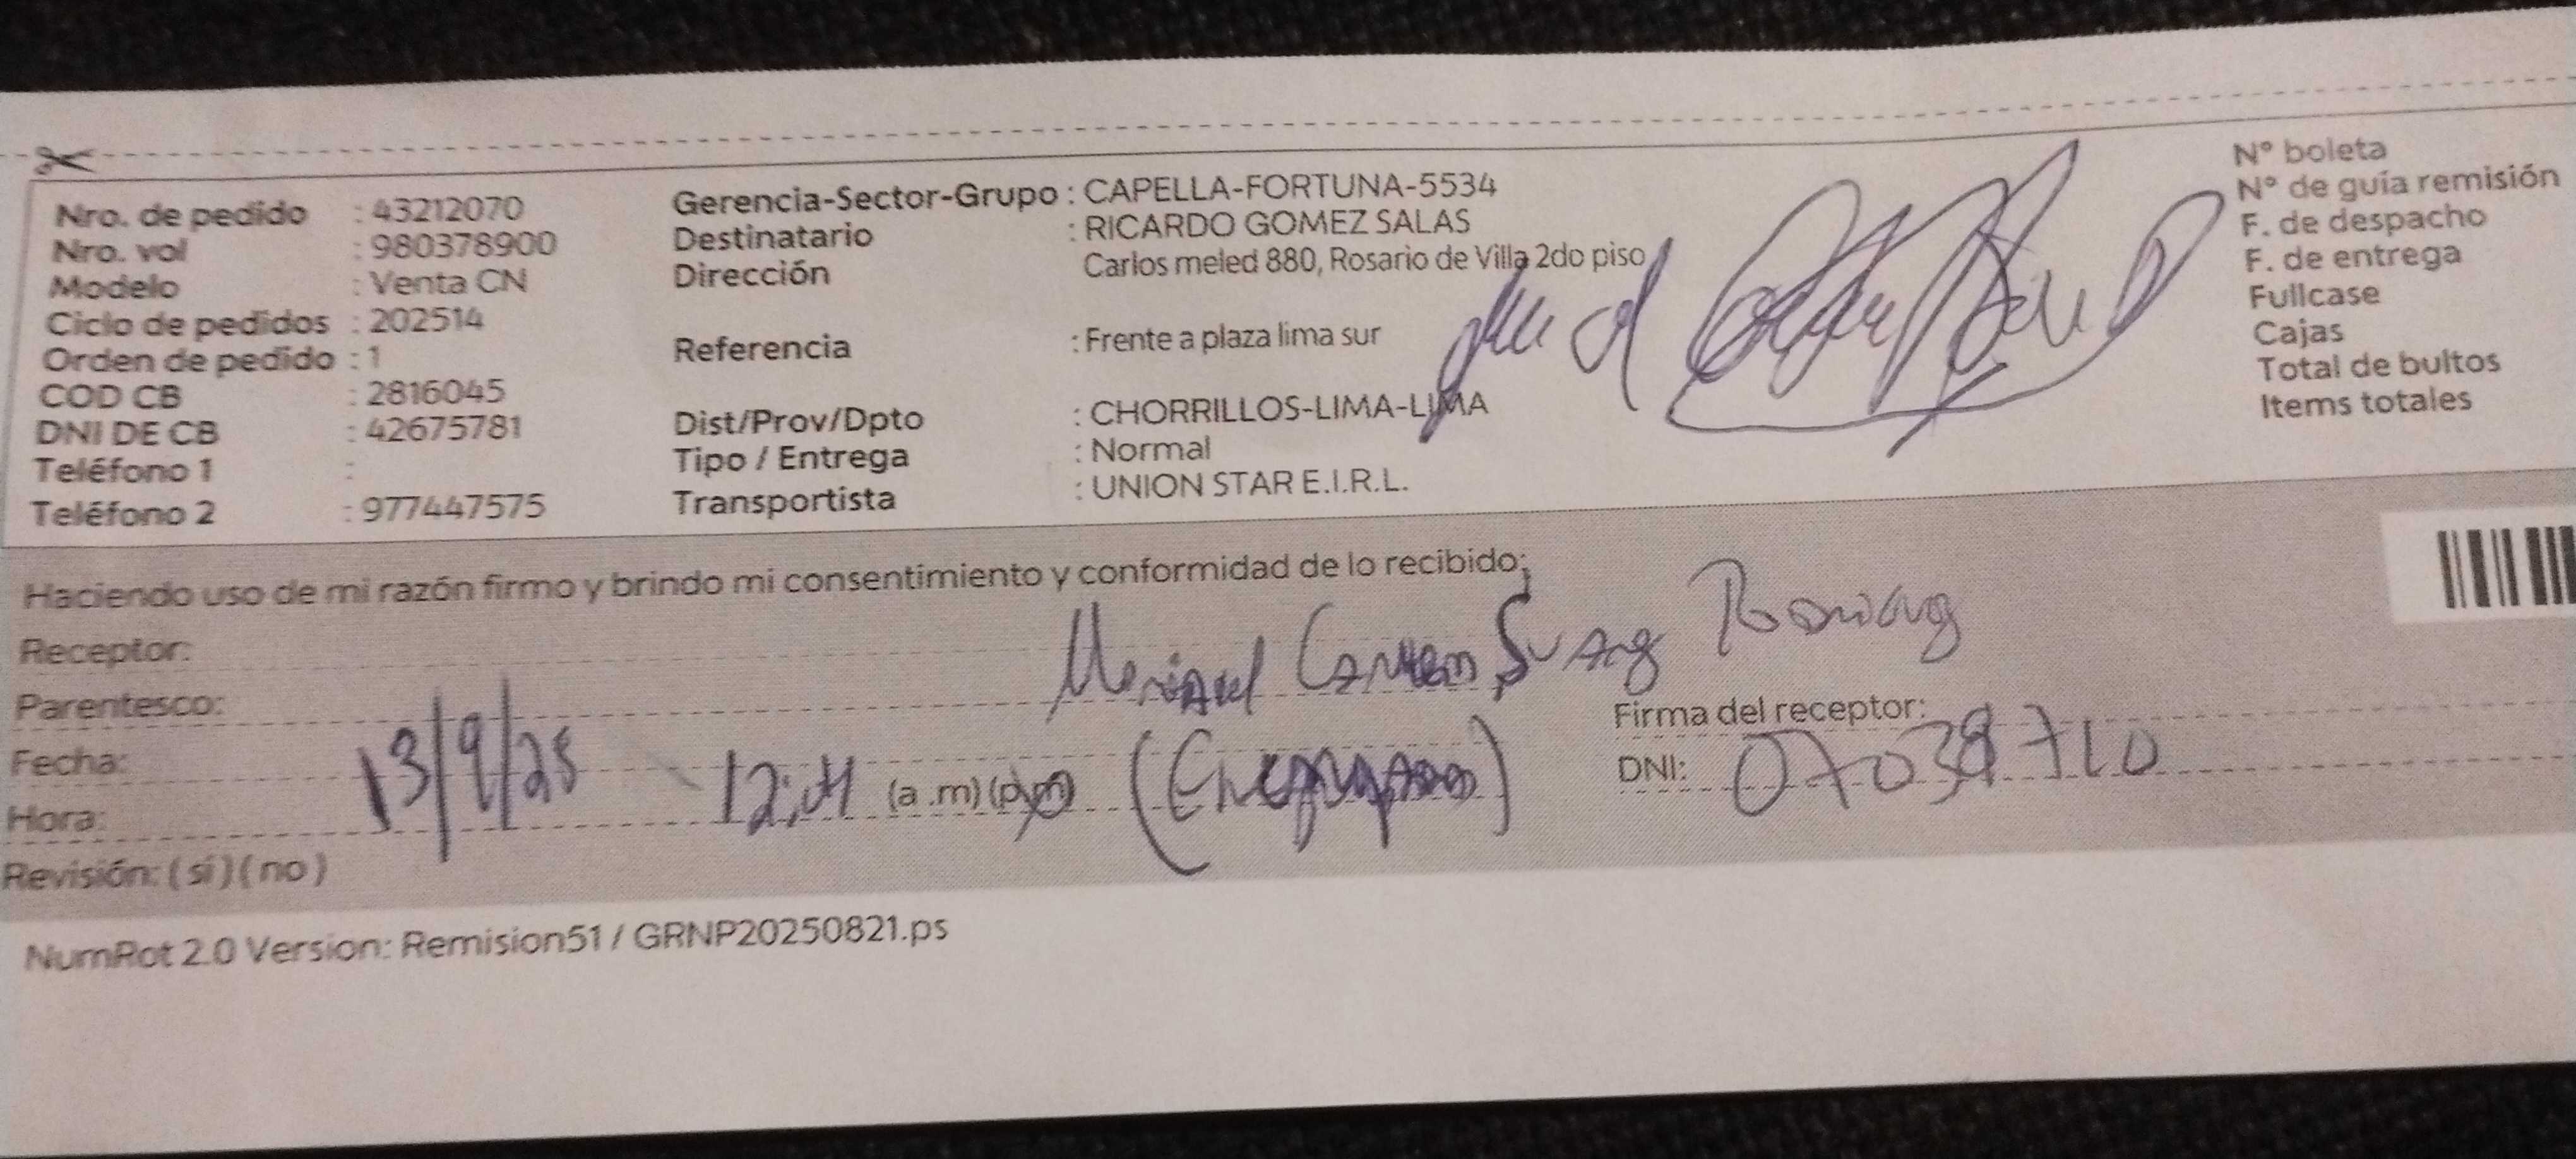 Nro. de pedido : 43212070
Nro. vol : 980378900
Modelo : Venta CN
Ciclo de pedidos : 202514
Orden de pedido : 1
COD CB : 2816045
DNI DE CB : 42675781
Teléfono 1 :
Teléfono 2 : 977447575
Gerencia-Sector-Grupo : CAPELLA-FORTUNA-5534
Destinatario : RICARDO GOMEZ SALAS
Dirección Carlos meled 880, Rosario de Villa 2do piso
Referencia : Frente a plaza lima sur
Dist/Prov/Dpto : CHORRILLOS-LIMA-LIMA
Tipo / Entrega : Normal
Transportista : UNION STAR E.I.R.L.
N° boleta
N° de guía remisión
F. de despacho
F. de entrega
Fullcase
Cajas
Total de bultos
Items totales
Haciendo uso de mi razón firmo y brindo mi consentimiento y conformidad de lo recibido;
Receptor:
Parentesco:
Fecha: 13/9/25
Hora: 12: (a .m) (p.m)
Firma del receptor:
DNI: 07038710
Revisión: ( sí ) ( no )
NumRot 2.0 Version: Remision51 / GRNP20250821.ps